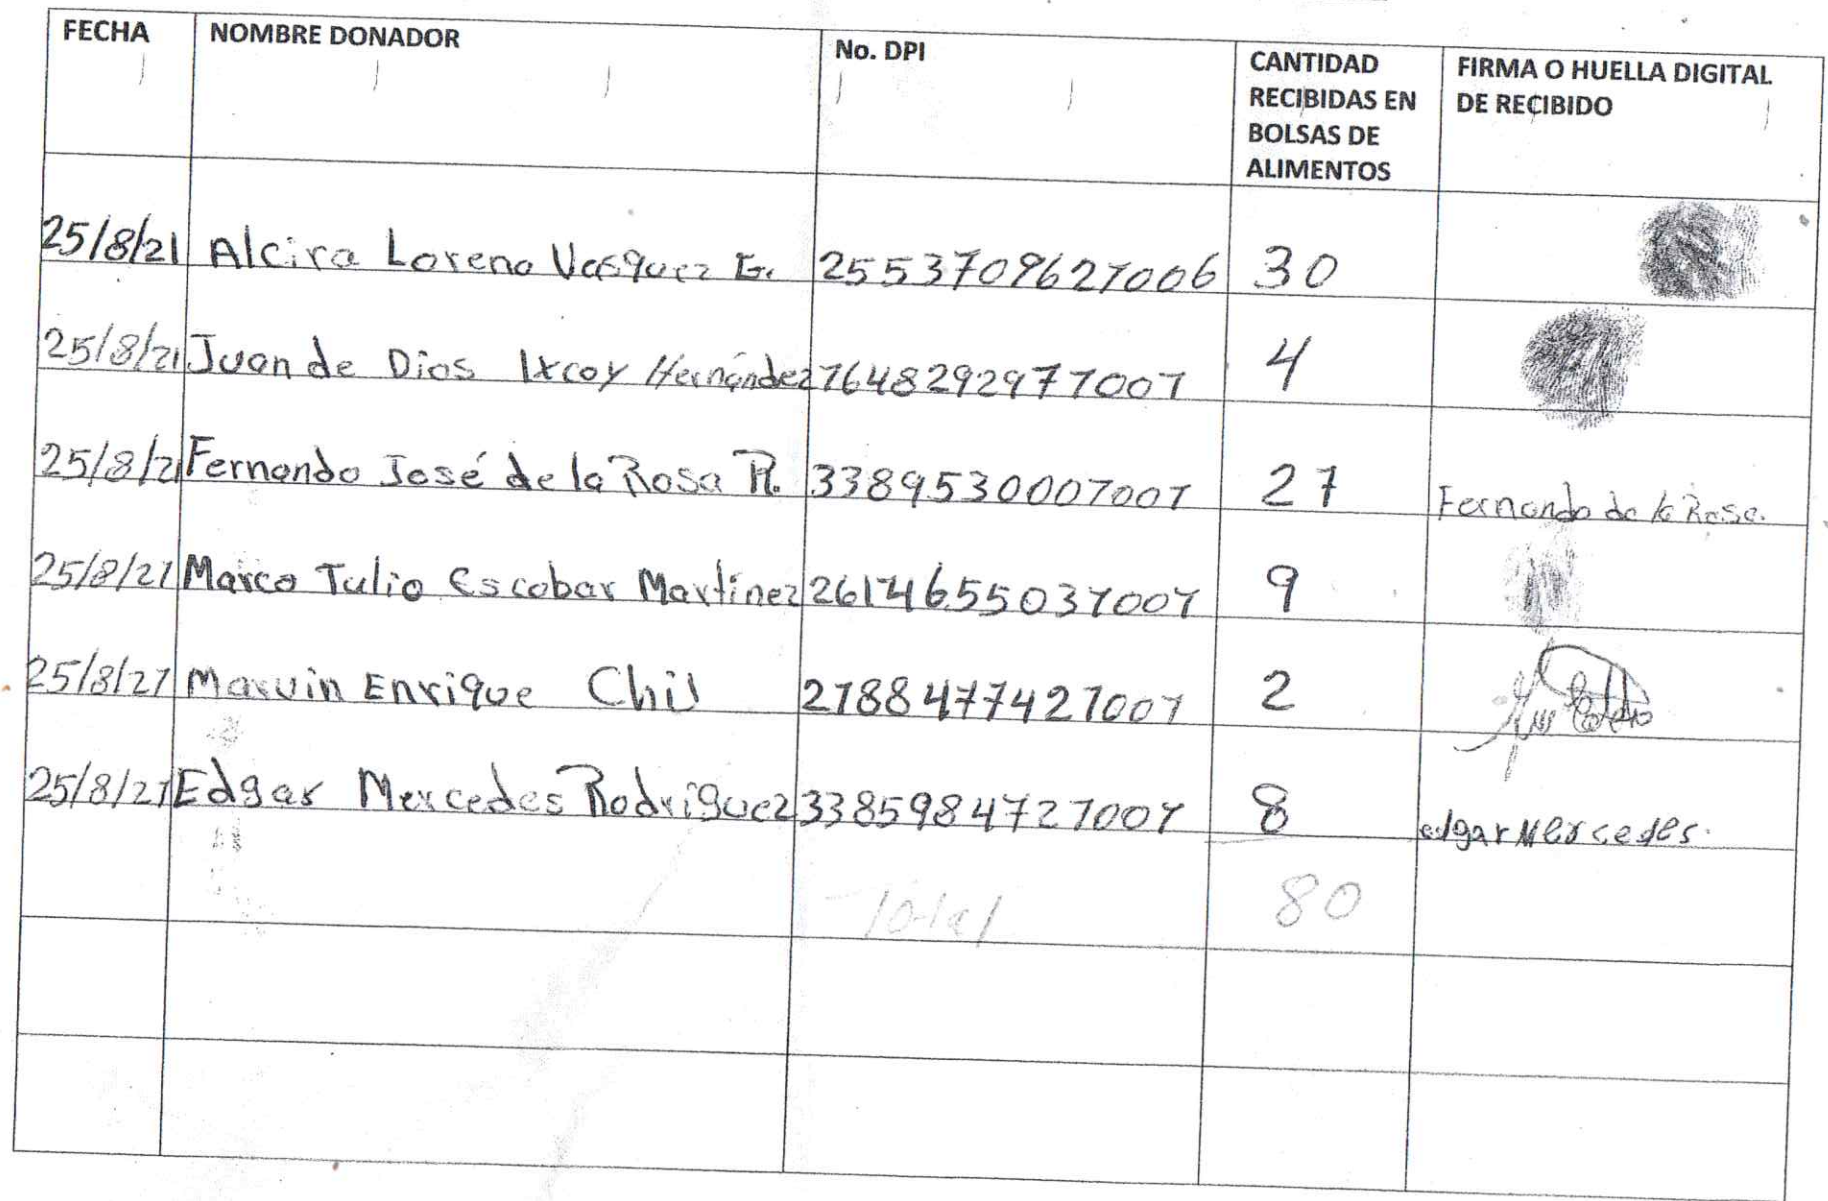 FECHA NOMBRE DONADOR No. DPI CANTIDAD RECIBIDAS EN BOLSAS DE ALIMENTOS FIRMA O HUELLA DIGITAL DE RECIBIDO
25/8/21 Alcira Lorena Vasquez G. 2553709627006 30
25/8/21 Juan de Dios Ixcoy Hernández 2764829297007 4
25/8/21 Fernando José de la Rosa R. 3389530007007 27 Fernando de la Rosa.
25/8/21 Marco Tulio Escobar Martinez 26174655037007 9
25/8/21 Marvin Enrique Chil 2788477427007 2
25/8/21 Edgar Mercedes Rodriguez 3385984727007 8 edgar Mercedes.
Total 80